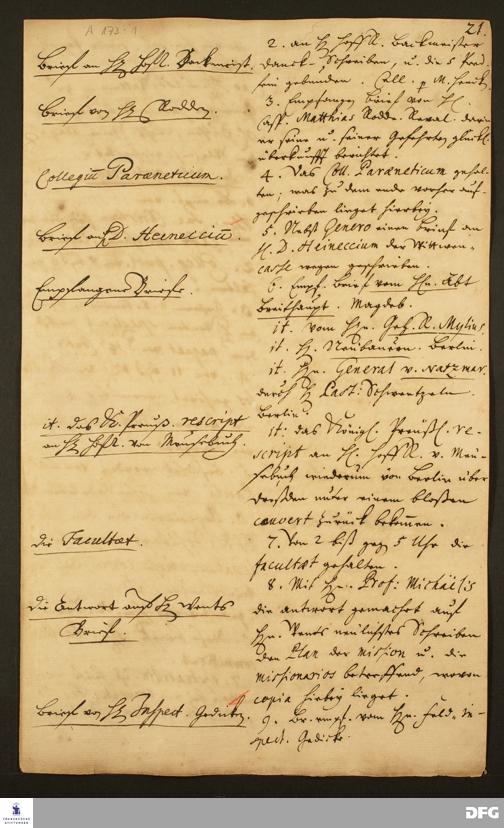 A 173:1
21.
Brief an H. Hoffr. Backmeist.
2. an H. Hoffr. Backmeister
Danck-Schreiben, u. die 5
sein gebunden.
Brief von H. Rodde.
3. Empfangen Brief von H.
Ass. Matthias Rodde. Reval. darin
er seine u. seiner Gefehrten glückl.
überkunfft berichtet.
Collegiu Paraeneticum.
4. Das Coll. Paraeneticum gehal-
ten, was zu dem ende vorher auf-
geschrieben lieget hierbey.
Brief an H. D. Heinecciu.
5. Nebst Genero einen brief an
H. D. Heineccium der Wittwen-
casse wegen geschrieben.
Empfangene Briefe.
6. Empf. brief vom Hn. Abt
Breithaupt. Magdeb.
it. vom Hn. Geh. R. Mylius.
it. H. Neubauern. Berlin.
it. Hn. General v. Natzmar.
durch H. Past. Schwentzeln
Berlin.
it. das K. Preuß. rescript
an H. Hoffr. von Münchebuch.
it. das Königl. Preußl. re-
script an H. Hoffr. v.
wiederum von Berlin über
Dresden unter einem blossen
couvert zurück bekomen.
die Facultæt.
7. Von 2 biß geg. 5 Uhr die
facultæt gehalten.
die Antwort auf H. Wents
Brief.
8. Mit Hn. Prof. Michaëlis
die antwort gemachet auf
Hn. Wents neulichstes Schreiben
den Plan der mission u. die
missionarios betreffend, wovon
copia hierbey lieget.
Brief von H. Inspect. Gedicke.
9. Br. empf. vom Hn. Feld-In-
spect. Gedicke.
FRANCKESCHE
STIFTUNGEN
DFG